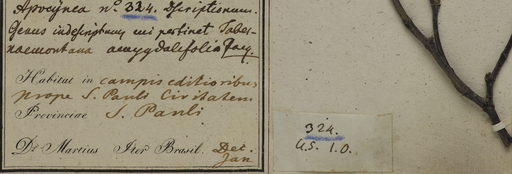 Apocynea nº 324. Descriptionum.
Genus indescriptum cui pertinet Taber-
naemontana amygdalifolia Jacq.
Habitat in campis editioribus
prope S. Pauli Civitatem
Provinciae S. Pauli
Dr Martius Iter Brasil. Dec.
Jan
324.
U.S. 1.0.